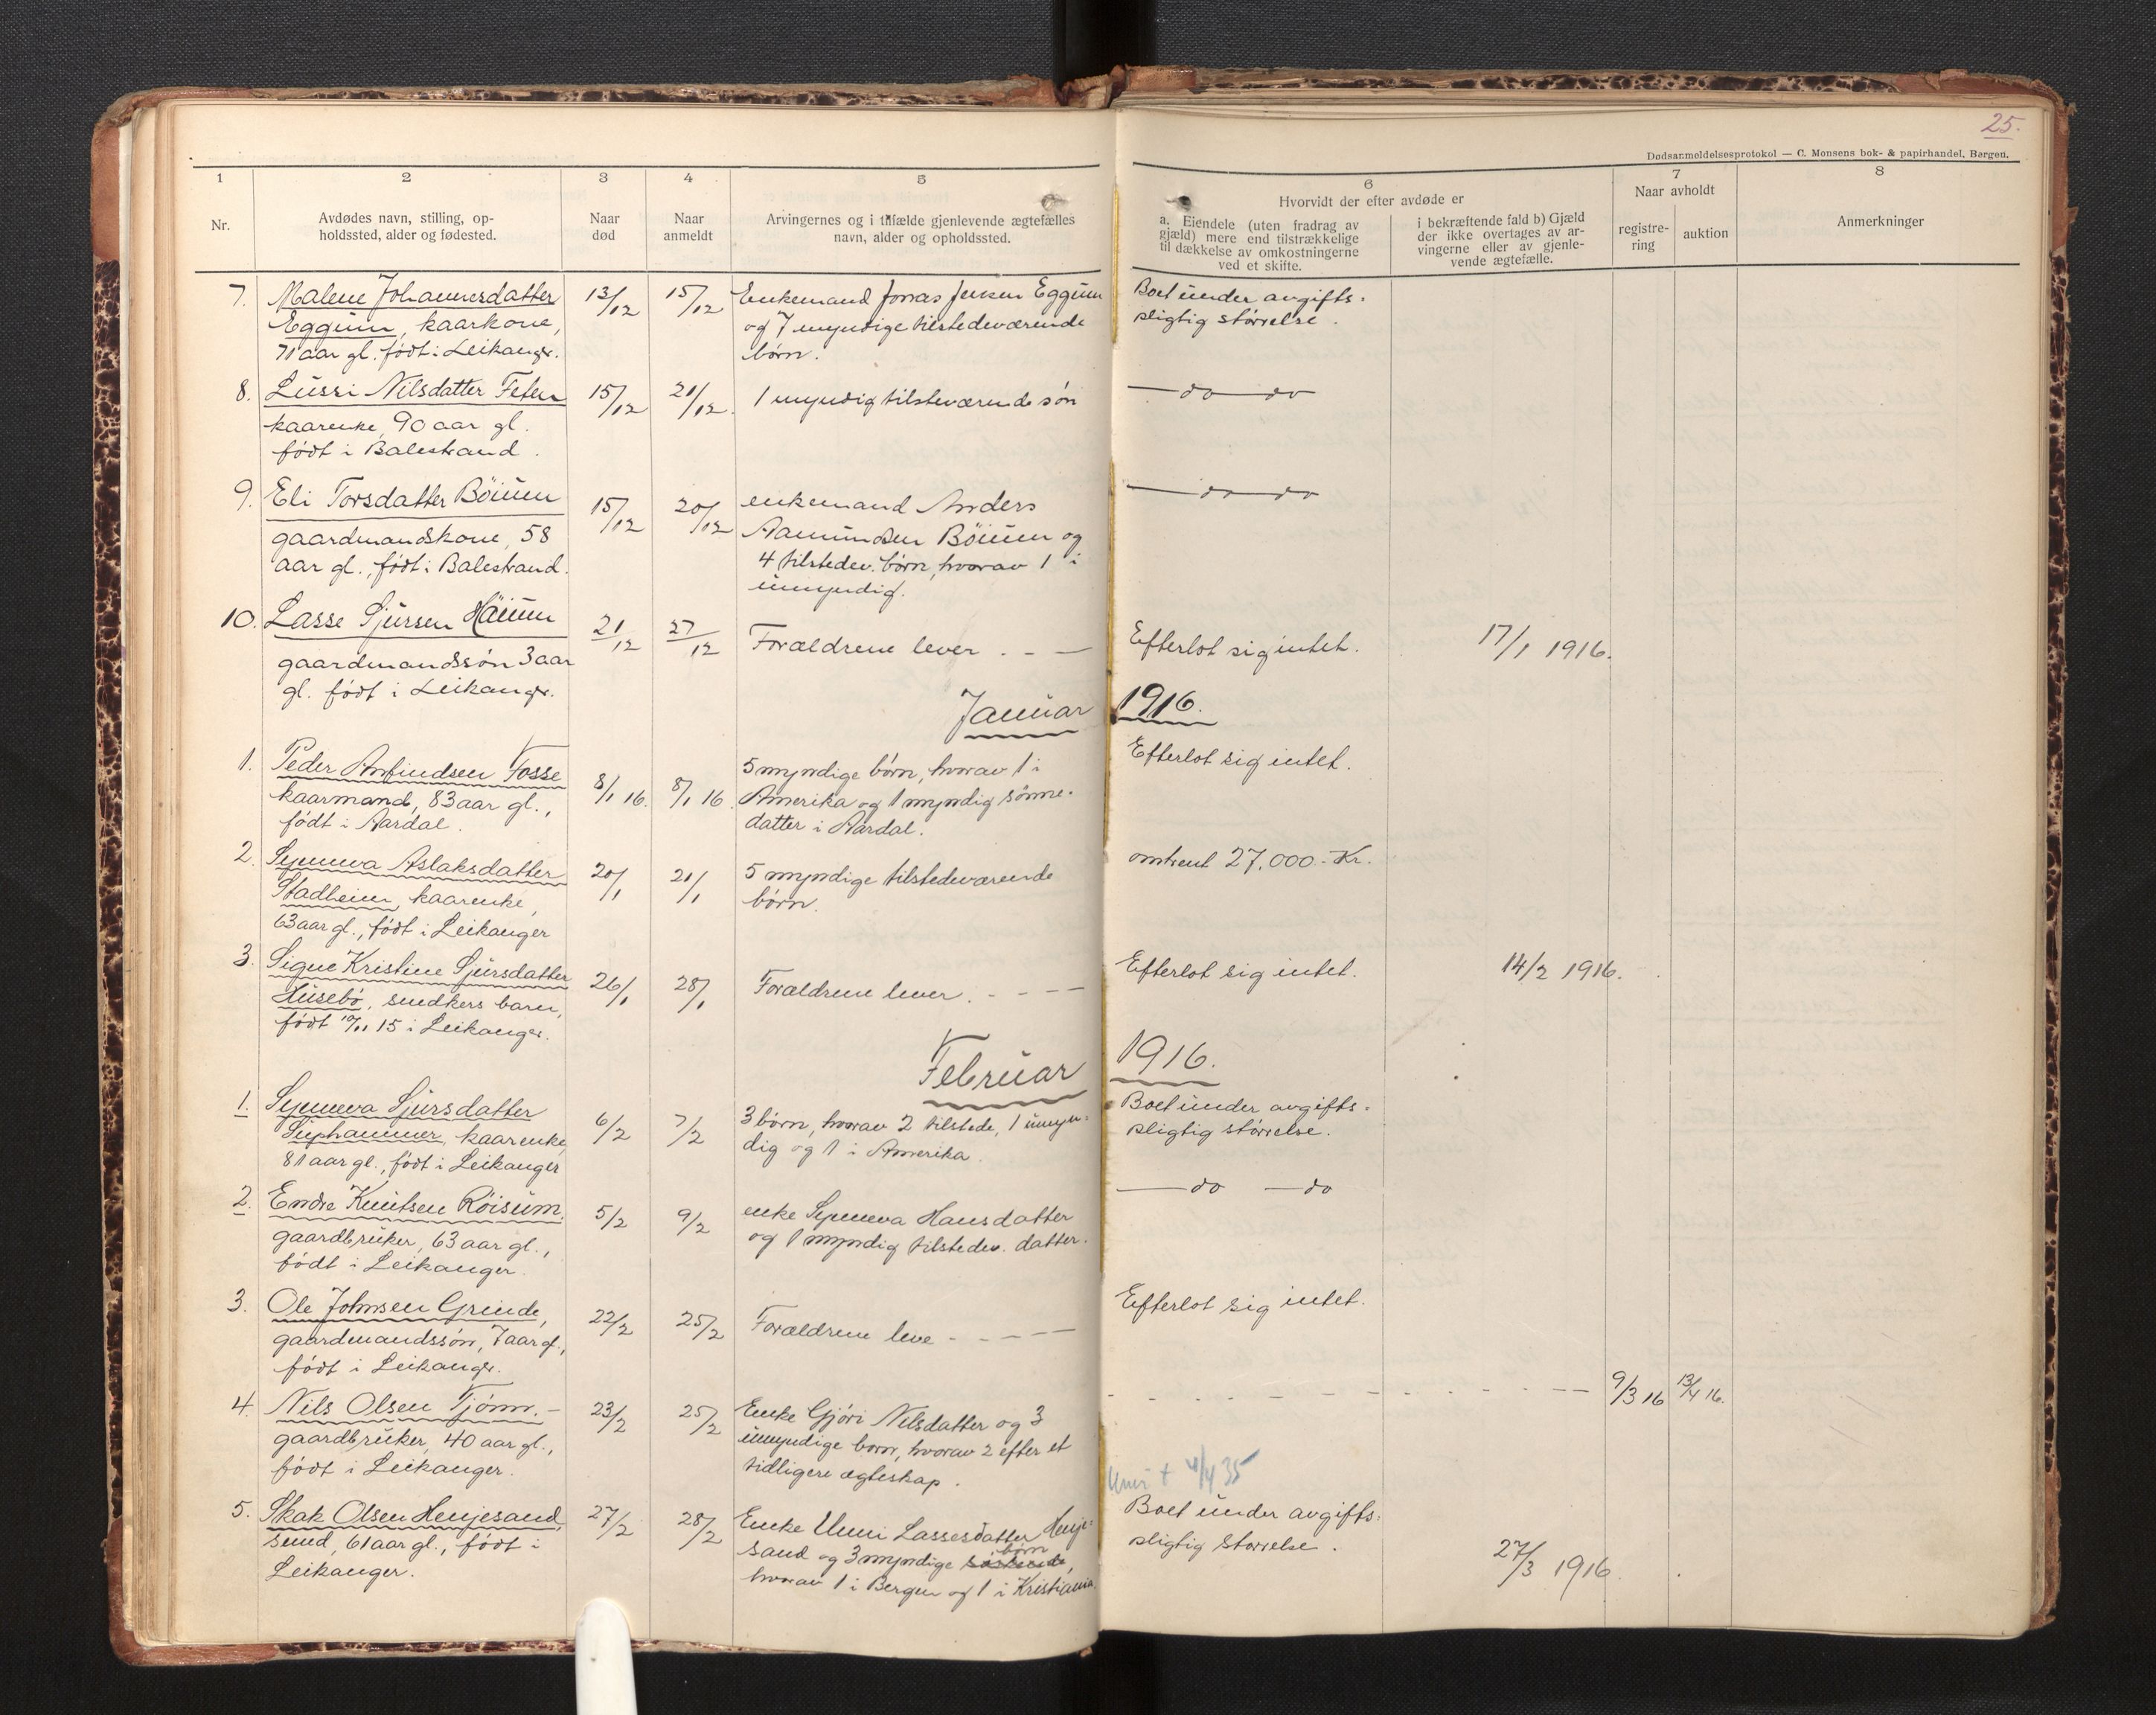 25.
Dødsanmeldelsesprotokol — C. Monsens bok- & papirhandel, Bergen.
1 2 3 4 5
Nr.
Avdødes navn, stilling, op-
holdssted, alder og fødested.
Naar
død
Naar
anmeldt
Arvingernes og i tilfælde gjenlevende ægtefælles
navn, alder og opholdssted.
6
Hvorvidt der efter avdøde er
a. Eiendele (uten fradrag av
gjæld) mere end tilstrækkelige
til dækkelse av omkostningerne
ved et skifte.
i bekræftende fald b) Gjæld
der ikke overtages av ar-
vingerne eller av gjenle-
vende ægtefælle.
7
Naar avholdt
registre-
ring
auktion
8
Anmerkninger
7. Malene Johannesdatter
Eggum, kaarkone,
71 aar gl. født i Leikanger.
13/12
15/12
Enkemand Jonas Jensen Eggum
og 7 myndige tilstedeværende
børn.
Boet under avgifts-
pligtig størrelse.
8. Lussi Nilsdatter Feten
kaarenke, 90 aar gl.
født i Balestrand.
15/12
21/12.
1 myndig tilsteværende søn
— do — do
9. Eli Torsdatter Böium
gaardmandskone, 58
aar gl., født i Balestrand.
15/12
20/12
enkemand Anders
Aamundsen Böium og
4 tilstedev. børn, hvorav 1
umyndig.
— do — do
10. Lasse Sjursen Häium
gaardmandssøn 3 aar
gl. født i Leikanger.
21/12
27/12
Forældrene lever. - —
Efterlot sig intet.
17/1 1916.
Januar 1916.
1. Peder Anfindsen Fosse
kaarmand, 83 aar gl.,
født i Aardal.
8/1 16.
8/1 16.
5 myndige børn, hvorav 1 i
Amerika og 1 myndig sønne-
datter i Aardal.
Efterlot sig intet.
2. Synneva Aslaksdatter
Stadheim, kaarenke,
63 aar gl., født i Leikanger
20/1
21/1
5 myndige tilstedeværende
børn.
omtrent 27.000 - Kr.
3. Signe Kristine Sjursdatter
Husebø, snedkers barn,
født 10/11 15 i Leikanger.
26/1
28/1
Forældrene lever. - - - —
Efterlot sig intet.
14/2 1916.
Februar 1916.
1. Synneva Sjursdatter
kaarenke,
81 aar gl., født i Leikanger
6/2
7/2
3 børn, hvorav 2 tilstede, 1 umyn-
dig og 1 i Amerika.
Boet under avgifts-
pligtig størrelse.
2. Endre Knutsen Röisum.
gaardbruker, 63 aar gl.,
født i Leikanger.
5/2
9/2
enke Synneva Hansdatter
og 1 myndig tilstedev. datter.
— do — do
3. Ole Johnsen Grinde,
gaardmandssøn, 7 aar gl.,
født i Leikanger.
22/2
25/2
Forældrene leve - - - - —
Efterlot sig intet.
4. Nils Olsen Tjönn. -
gaardbruker, 40 aar gl.,
født i Leikanger.
23/2
25/2
Enke Gjöri Nilsdatter og 3
umyndige børn, hvorav 2 efter et
tidligere ægteskap.
9/3 16
13/4 16.
Unni + 4/4 35
5. Skak Olsen Henjesand,
smed, 61 aar gl., født i
Leikanger.
27/2
28/2
Enke Unni Lassesdatter Henje-
sand og 3 myndige søskende børn,
hvorav 1 i Bergen og 1 i Kristiania.
Boet under avgifts-
pligtig størrelse.
27/3 1916.